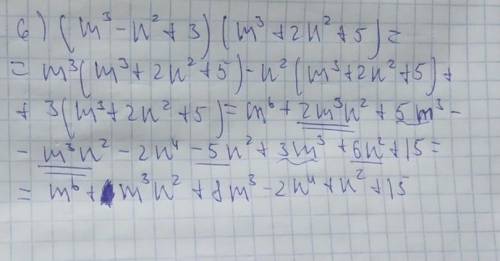 6) (m³ - n² + 3) (m³ + 2n² + 5) =
= m³ (m³ + 2n² + 5) - n² (m³ + 2n² + 5) +
+ 3 (m³ + 2n² + 5) = m⁶ + 2m³n² + 5m³ -
- m³n² - 2n⁴ - 5n² + 3m³ + 6n² + 15 =
= m⁶ + m³n² + 8m³ - 2n⁴ + n² + 15